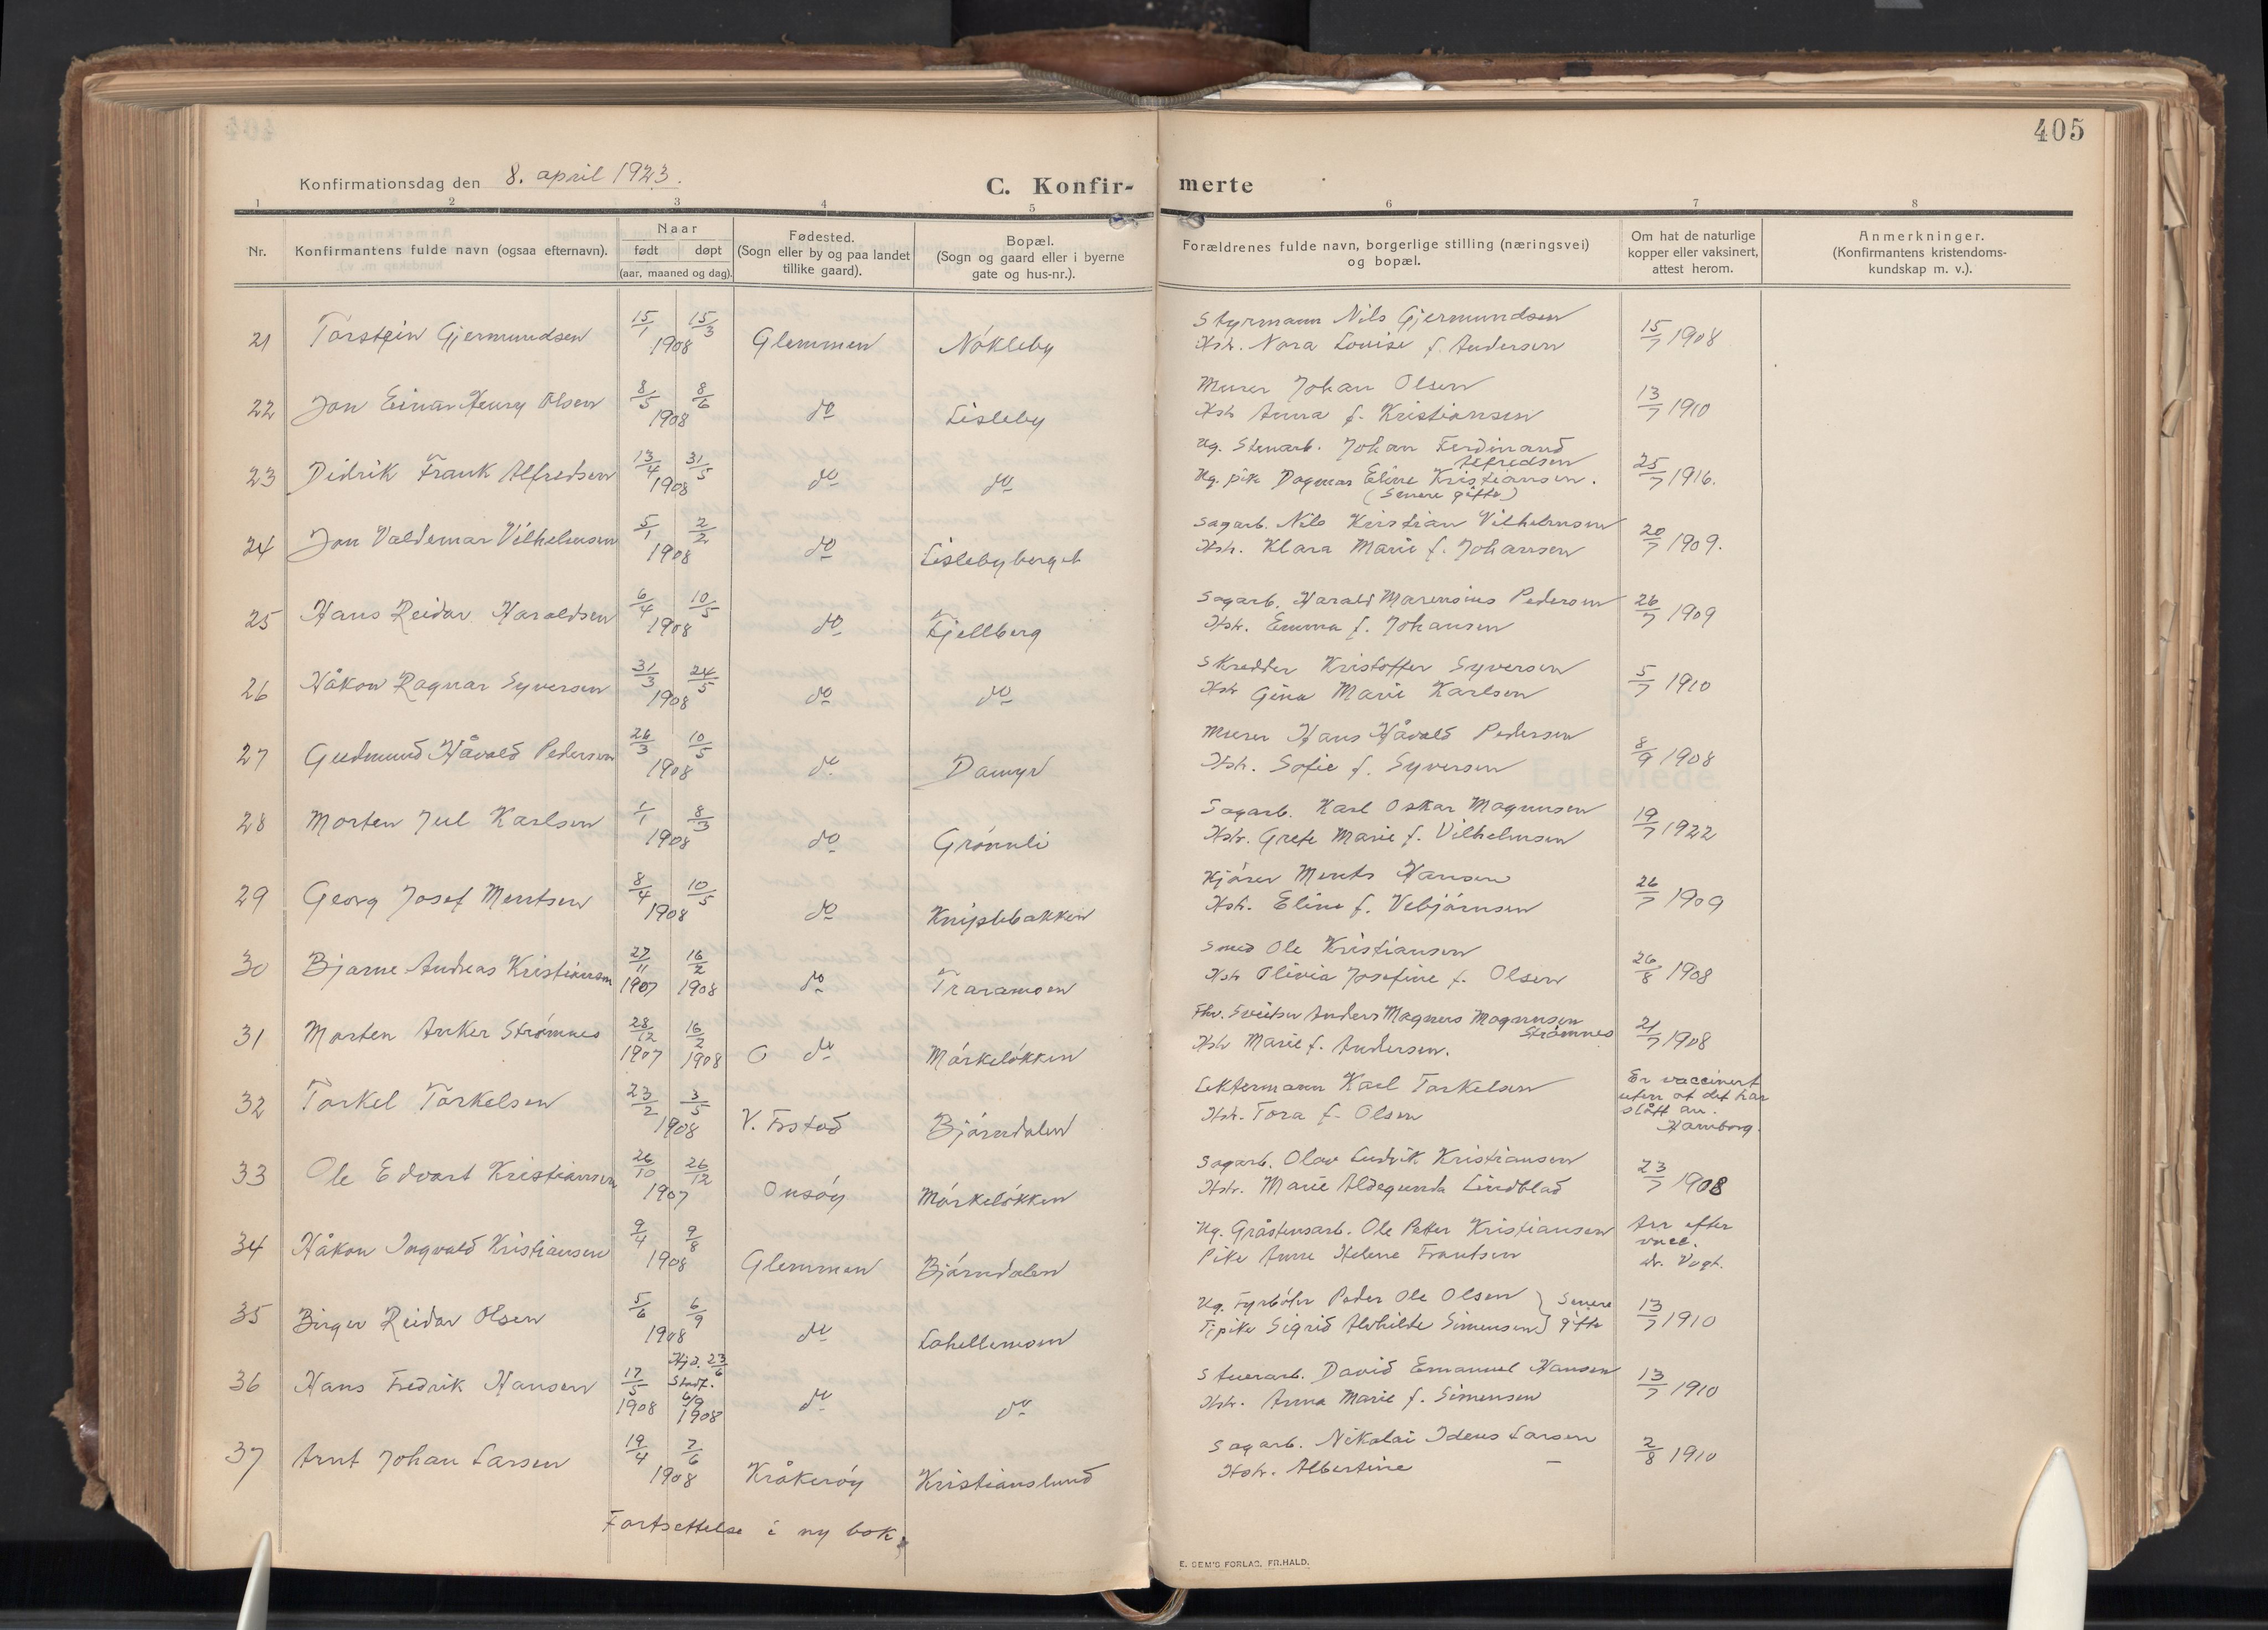 405
Konfirmationsdag den 8. april 1923.
C. Konfir-
merte
1 2 3 4 5 6 7 8
Nr.
Konfirmantens fulde navn (ogsaa efternavn).
Naar
født døpt
(aar, maaned og dag).
Fødested.
(Sogn eller by og paa landet
tillike gaard).
Bopæl.
(Sogn og gaard eller i byerne
gate og hus-nr.).
Forældrenes fulde navn, borgerlige stilling (næringsvei)
og bopæl.
Om hat de naturlige
kopper eller vaksinert,
attest herom.
Anmerkninger.
(Konfirmantens kristendoms-
kundskap m. v.).
21 Torstein Gjermundsen 15/1 15/3 1908 Glemmen Nökleby
Styrmann Nils Gjermundsen
Hstr. Nora Louise f. Andersen
15/7 1908
22 Jon Einar Henry Olsen 8/5 8/6 1908 do Lisleby
Murer Johan Olsen
Hstr Anna f. Kristiansen
13/7 1910
23 Didrik Frank Alfredsen 13/4 31/5 1908 do do
Ug. Stenarb. Johan Ferdinand
Alfredsen
Ug. pike Dagmar Eline Kristiansen.
(Senere gifte)
25/7 1916.
24 Jon Valdemar Vilhelmsen 5/1 2/2 1908 do Lislebyberget
Sagarb. Nils Kristian Vilhelmsen
Hstr. Klara Marie f. Johansen
20/7 1909.
25 Hans Reidar Haraldsen 6/4 10/5 1908 do Kjellberg
Sagarb. Harald Marensius Pedersen
Hstr. Emma f. Johansen
26/7 1909
26 Håkon Ragnar Syversen 31/3 24/5 1908 do do
Skredder Kristoffer Syversen
Hstr Gina Marie Karlsen
5/7 1910
27 Gudmund Håvald Pedersen 26/3 10/5 1908 do Damyr
Murer Hans Håvald Pedersen
Hstr. Sofie f. Syversen
8/9 1908
28 Morten Juel Karlsen 1/1 8/3 1908 do Grönnli
Sagarb. Karl Oskar Magnusen
Hstr. Grete Marie f. Vilhelmsen
19/7 1922
29 Georg Josef Mentsen 8/4 10/5 1908 do Kniplebakken
Kjörer Ments Hansen
Hstr. Eline f. Vebjörnsen
26/7 1909
30 Bjarne Andreas Kristiansen 27/11 1907 16/2 1908 do Traramoen
Smed Ole Kristiansen
Hstr Olivia Josefine f. Olsen
26/8 1908
31 Morten Anker Strömnes 28/12 1907 16/2 1908 do Mörkelökken
Fhv. Anders Magnus Magnusen
Strömnes
Hstr Marie f. Andersen.
21/7 1908
32 Torkel Torkelsen 23/2 3/5 1908 V. Frstad Björndalen
Lektermann Karl Torkelsen
Hstr. Tora f. Olsen
Er vaccinert
uten at det har
slått an.
Hamborg.
33 Ole Edvart Kristiansen 26/10 26/12 1907 Onsöy Mörkelökken
Sagarb. Olav Ludvik Kristiansen
Hstr. Marie Aldegunda Lindblad
23/7 1908
34 Håkon Ingvald Kristiansen 9/4 9/8 1908 Glemmen Björndalen
Ug. Gråstensarb. Ole Petter Kristiansen
Pike Anne Helene Frantsen
Arr efter
vacc.
dr. Vogt.
35 Birger Reidar Olsen 5/6 6/9 1908 do Lahellemoen
Ug. Fyrböter Peder Ole Olsen } Senere
Tj pike Sigrid Alvhilde Simensen } gifte
13/7 1910
36 Hans Fredrik Hansen 17/5 1908 Hjd. 23/6 Stadf. 6/9 1908 do do
Stuerarb. David Emanuel Hansen
Hstr. Anna Marie f. Simensen
13/7 1910
37 Arnt Johan Larsen 19/4 7/6 1908 Kråkeröy Kristianslund
Sagarb. Nikolai Ideus Larsen
Hstr. Albertine —
2/8 1910
Fortsettelse i ny bok.
E. SEM'S FORLAG, FR.HALD.